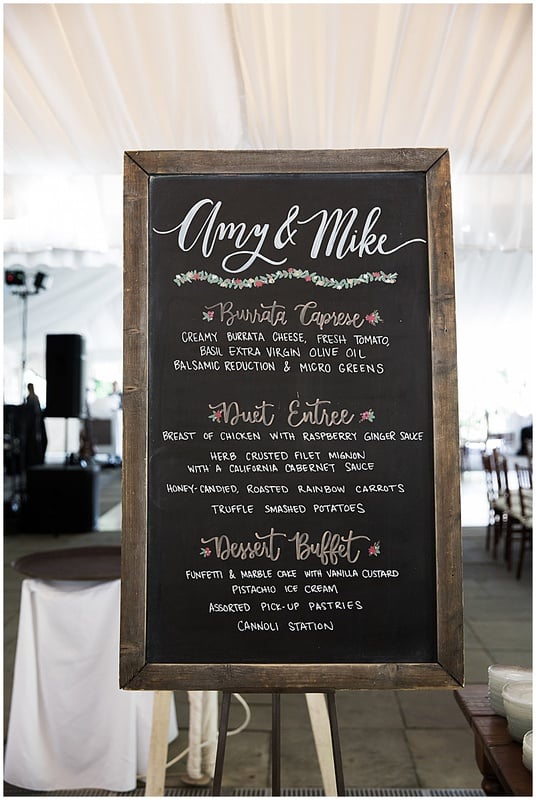 Amy & Mike
Burrata Caprese
CREAMY BURRATA CHEESE, FRESH TOMATO,
BASIL EXTRA VIRGIN OLIVE OIL
BALSAMIC REDUCTION & MICRO GREENS
Duet Entree
BREAST OF CHICKEN WITH RASPBERRY GINGER SAUCE
HERB CRUSTED FILET MIGNON
WITH A CALIFORNIA CABERNET SAUCE
HONEY-CANDIED, ROASTED RAINBOW CARROTS
TRUFFLE SMASHED POTATOES
Dessert Buffet
FUNFETTI & MARBLE CAKE WITH VANILLA CUSTARD
PISTACHIO ICE CREAM
ASSORTED PICK-UP PASTRIES
CANNOLI STATION